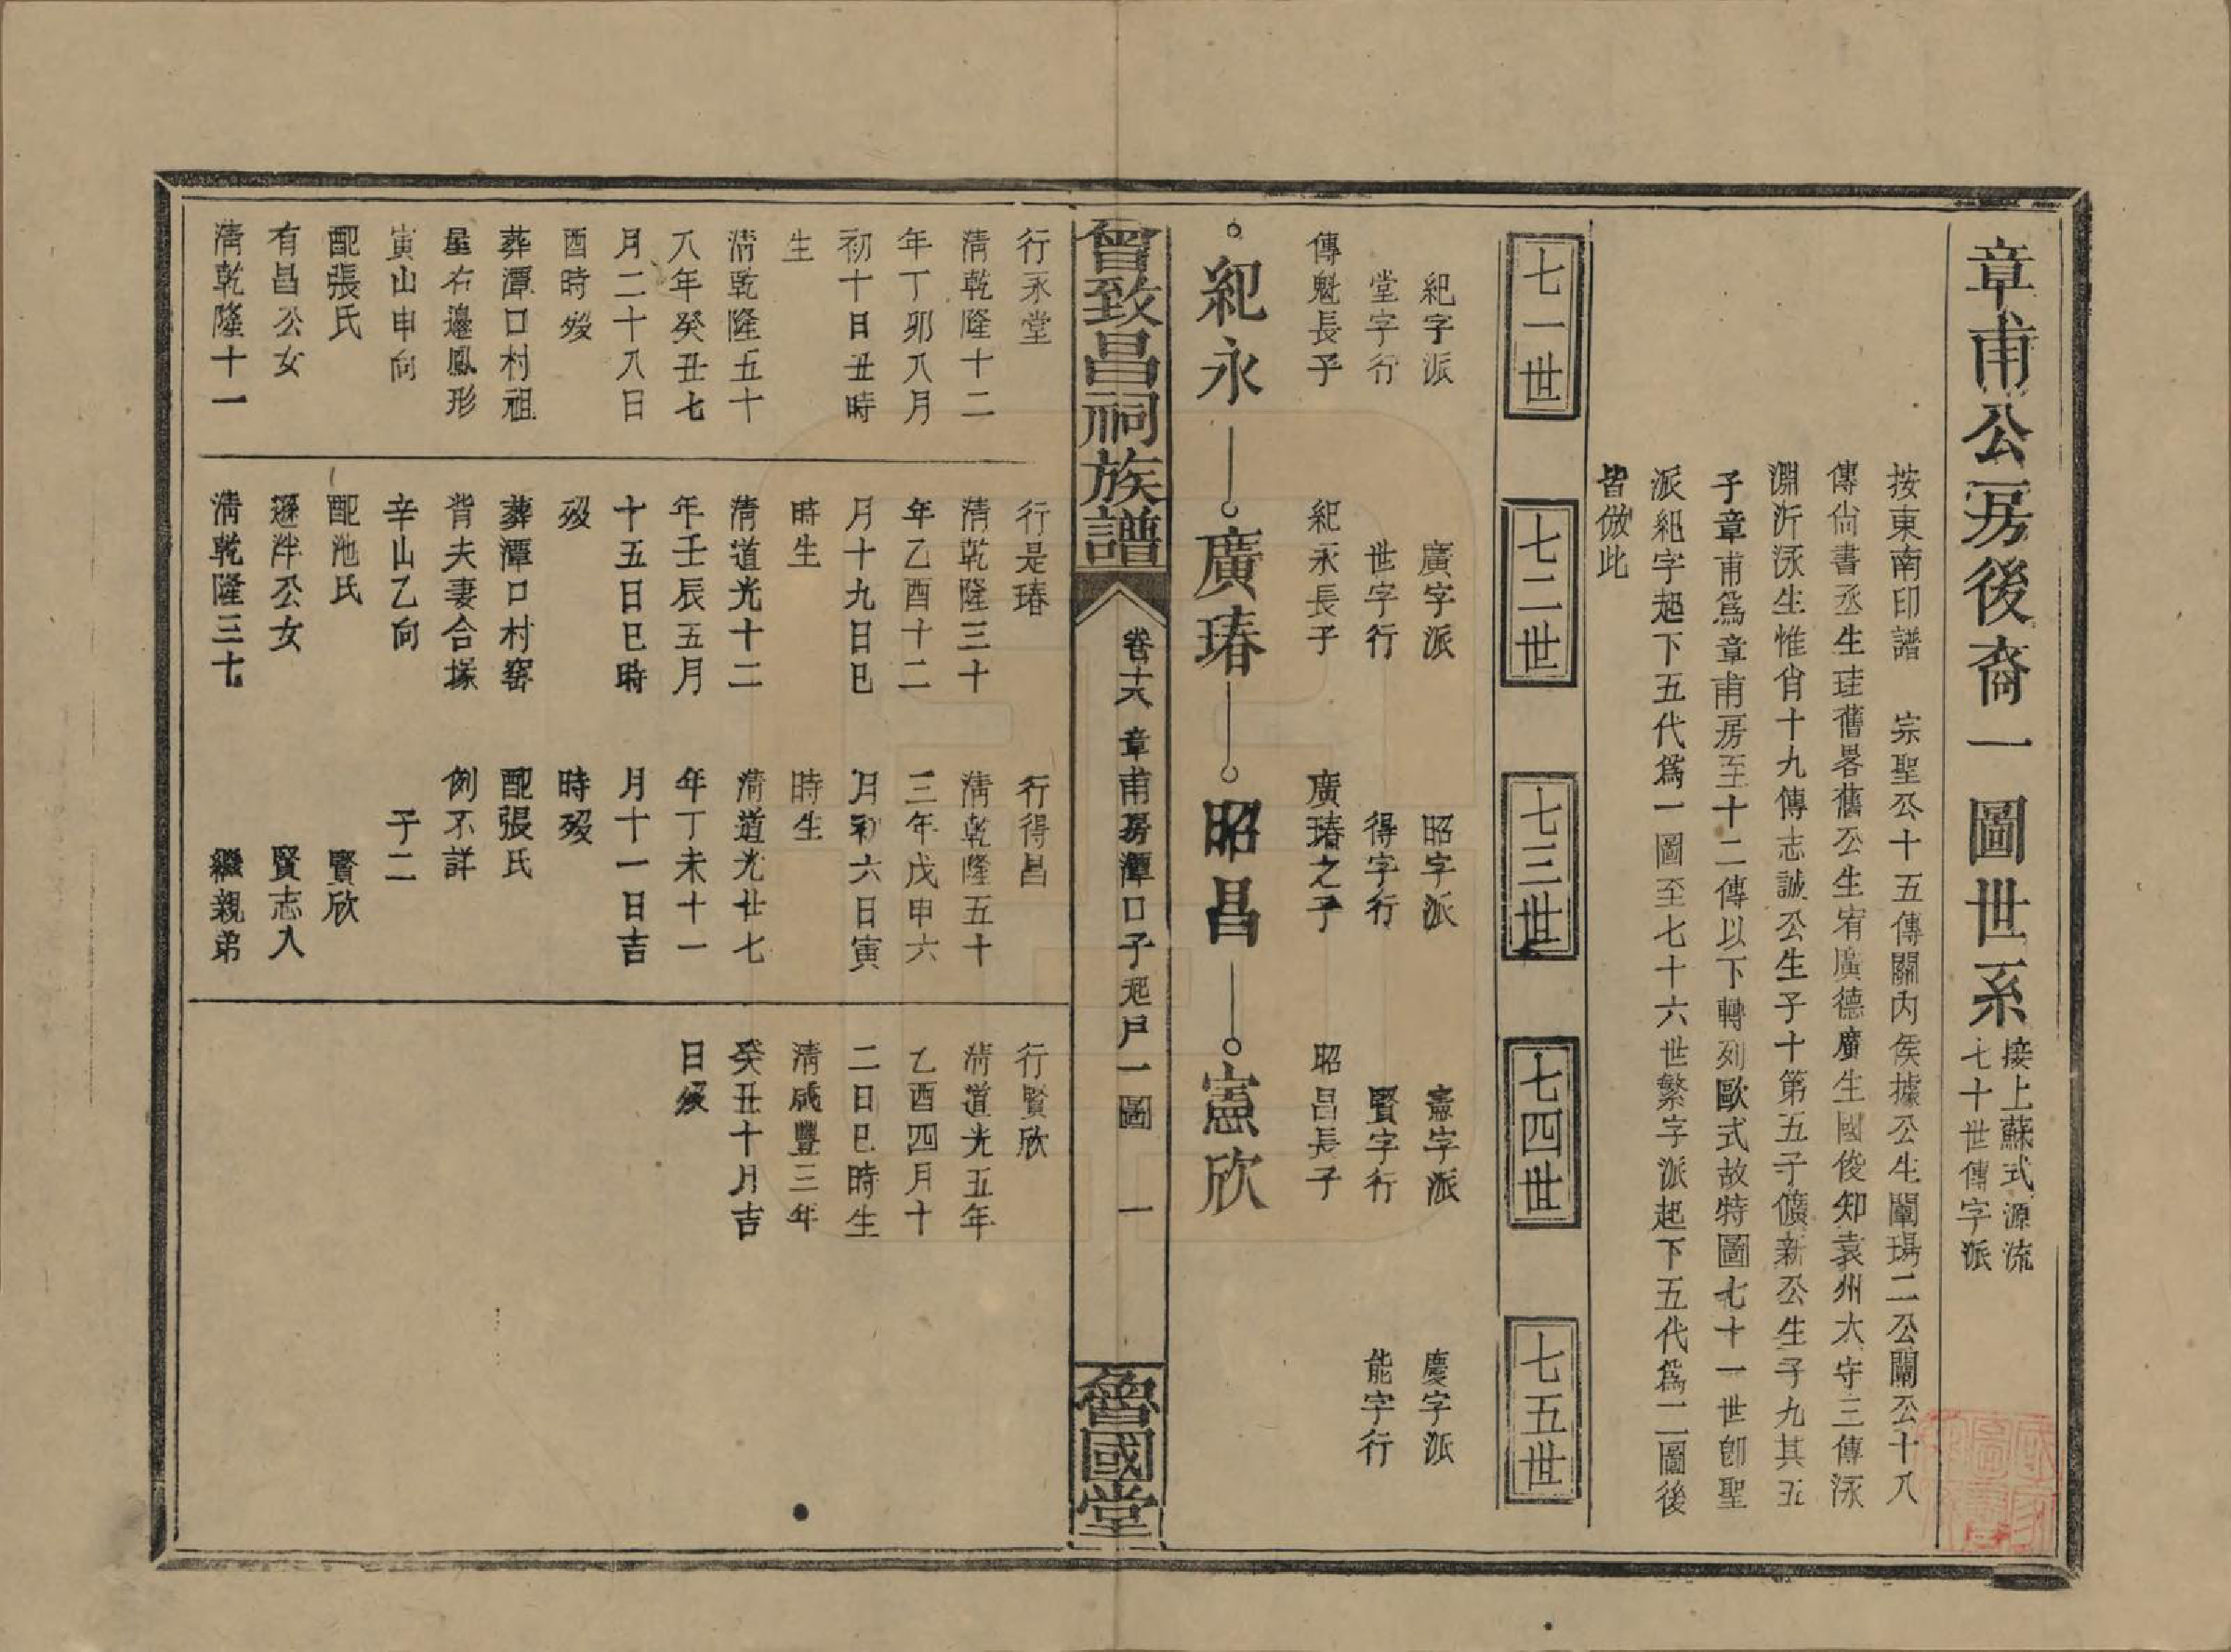 章甫公房後裔一圖世系
接上蘇式源流
七十世傳字派
按東南印譜　宗聖公十五傳關內侯據公生闡瑒二公闡公十八
傳尙書丞生珪舊畧舊公生宥廣德廣生國俊知袁州大守三傳泳
淵沂泳生惟肖十九傳志誠公生子十第五子儣新公生子九其五
子章甫爲章甫房至十二傳以下轉列歐式故特圖七十一世卽聖
派紀字起下五代爲一圖至七十六世繁字派起下五代爲二圖後
皆倣此
七一世
七二世
七三世
七四世
七五世
紀字派
堂字行
傳魁長子
廣字派
世字行
紀永長子
昭字派
得字行
廣瑃之子
憲字派
賢字行
昭昌長子
慶字派
能字行
紀永
廣瑃
昭昌
憲欣
曾致昌祠族譜
卷十六　章甫房潭口子起戶一圖　一
魯國堂
行永堂
清乾隆十二
年丁卯八月
初十日丑時
生
清乾隆五十
八年癸丑七
月二十八日
酉時歿
葬潭口村祖
星右邊鳳形
寅山申向
配張氏
有昌公女
清乾隆十一
行是瑃
清乾隆三十
年乙酉十二
月十九日巳
時生
清道光十二
年壬辰五月
十五日巳時
歿
葬潭口村窑
背夫妻合塚
辛山乙向
配池氏
遜泮公女
清乾隆三七
行得昌
清乾隆五十
三年戊申六
月初六日寅
時生
清道光廿七
年丁未十一
月十一日吉
時歿
配張氏
例不詳
子二
賢欣
賢志入
繼親弟
行賢欣
清道光五年
乙酉四月十
二日巳時生
清咸豐三年
癸丑十月吉
日歿